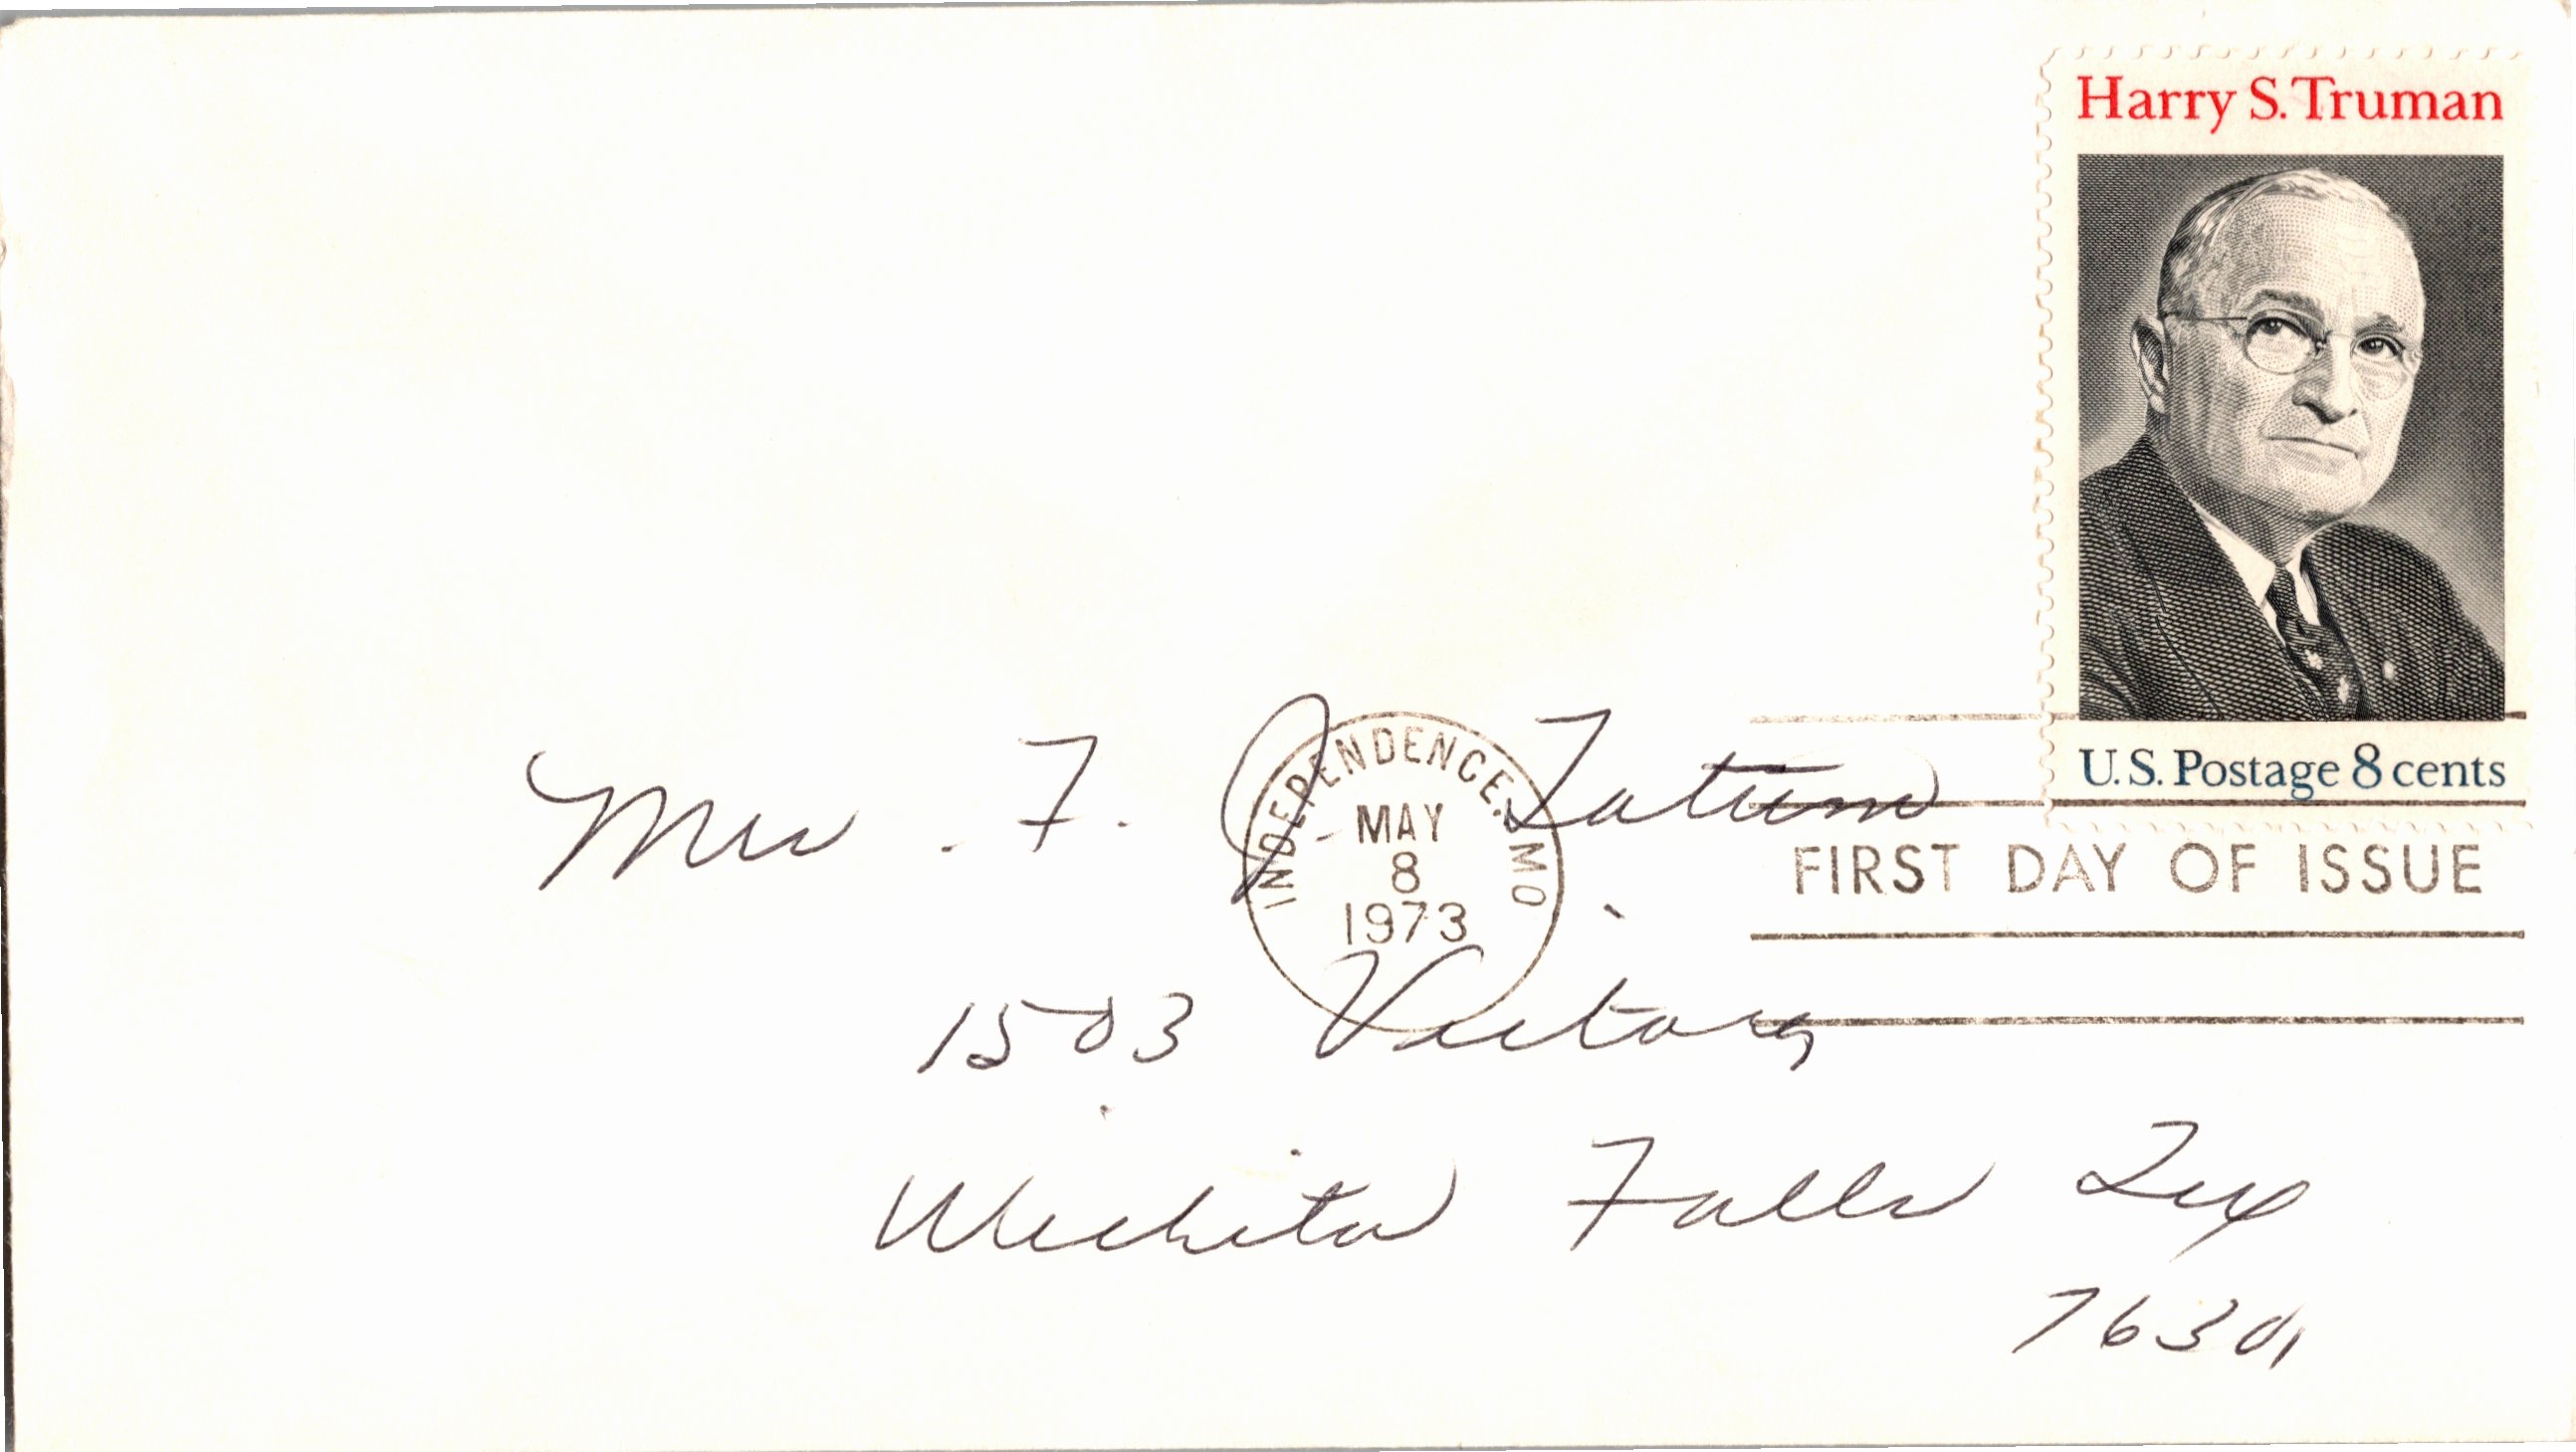 Harry S. Truman
U.S. Postage 8 cents
INDEPENDENCE, MO
MAY
8
1973
FIRST DAY OF ISSUE
Mrs. F. J. Tatum
1503 Victory
Wichita Falls Tex
76301